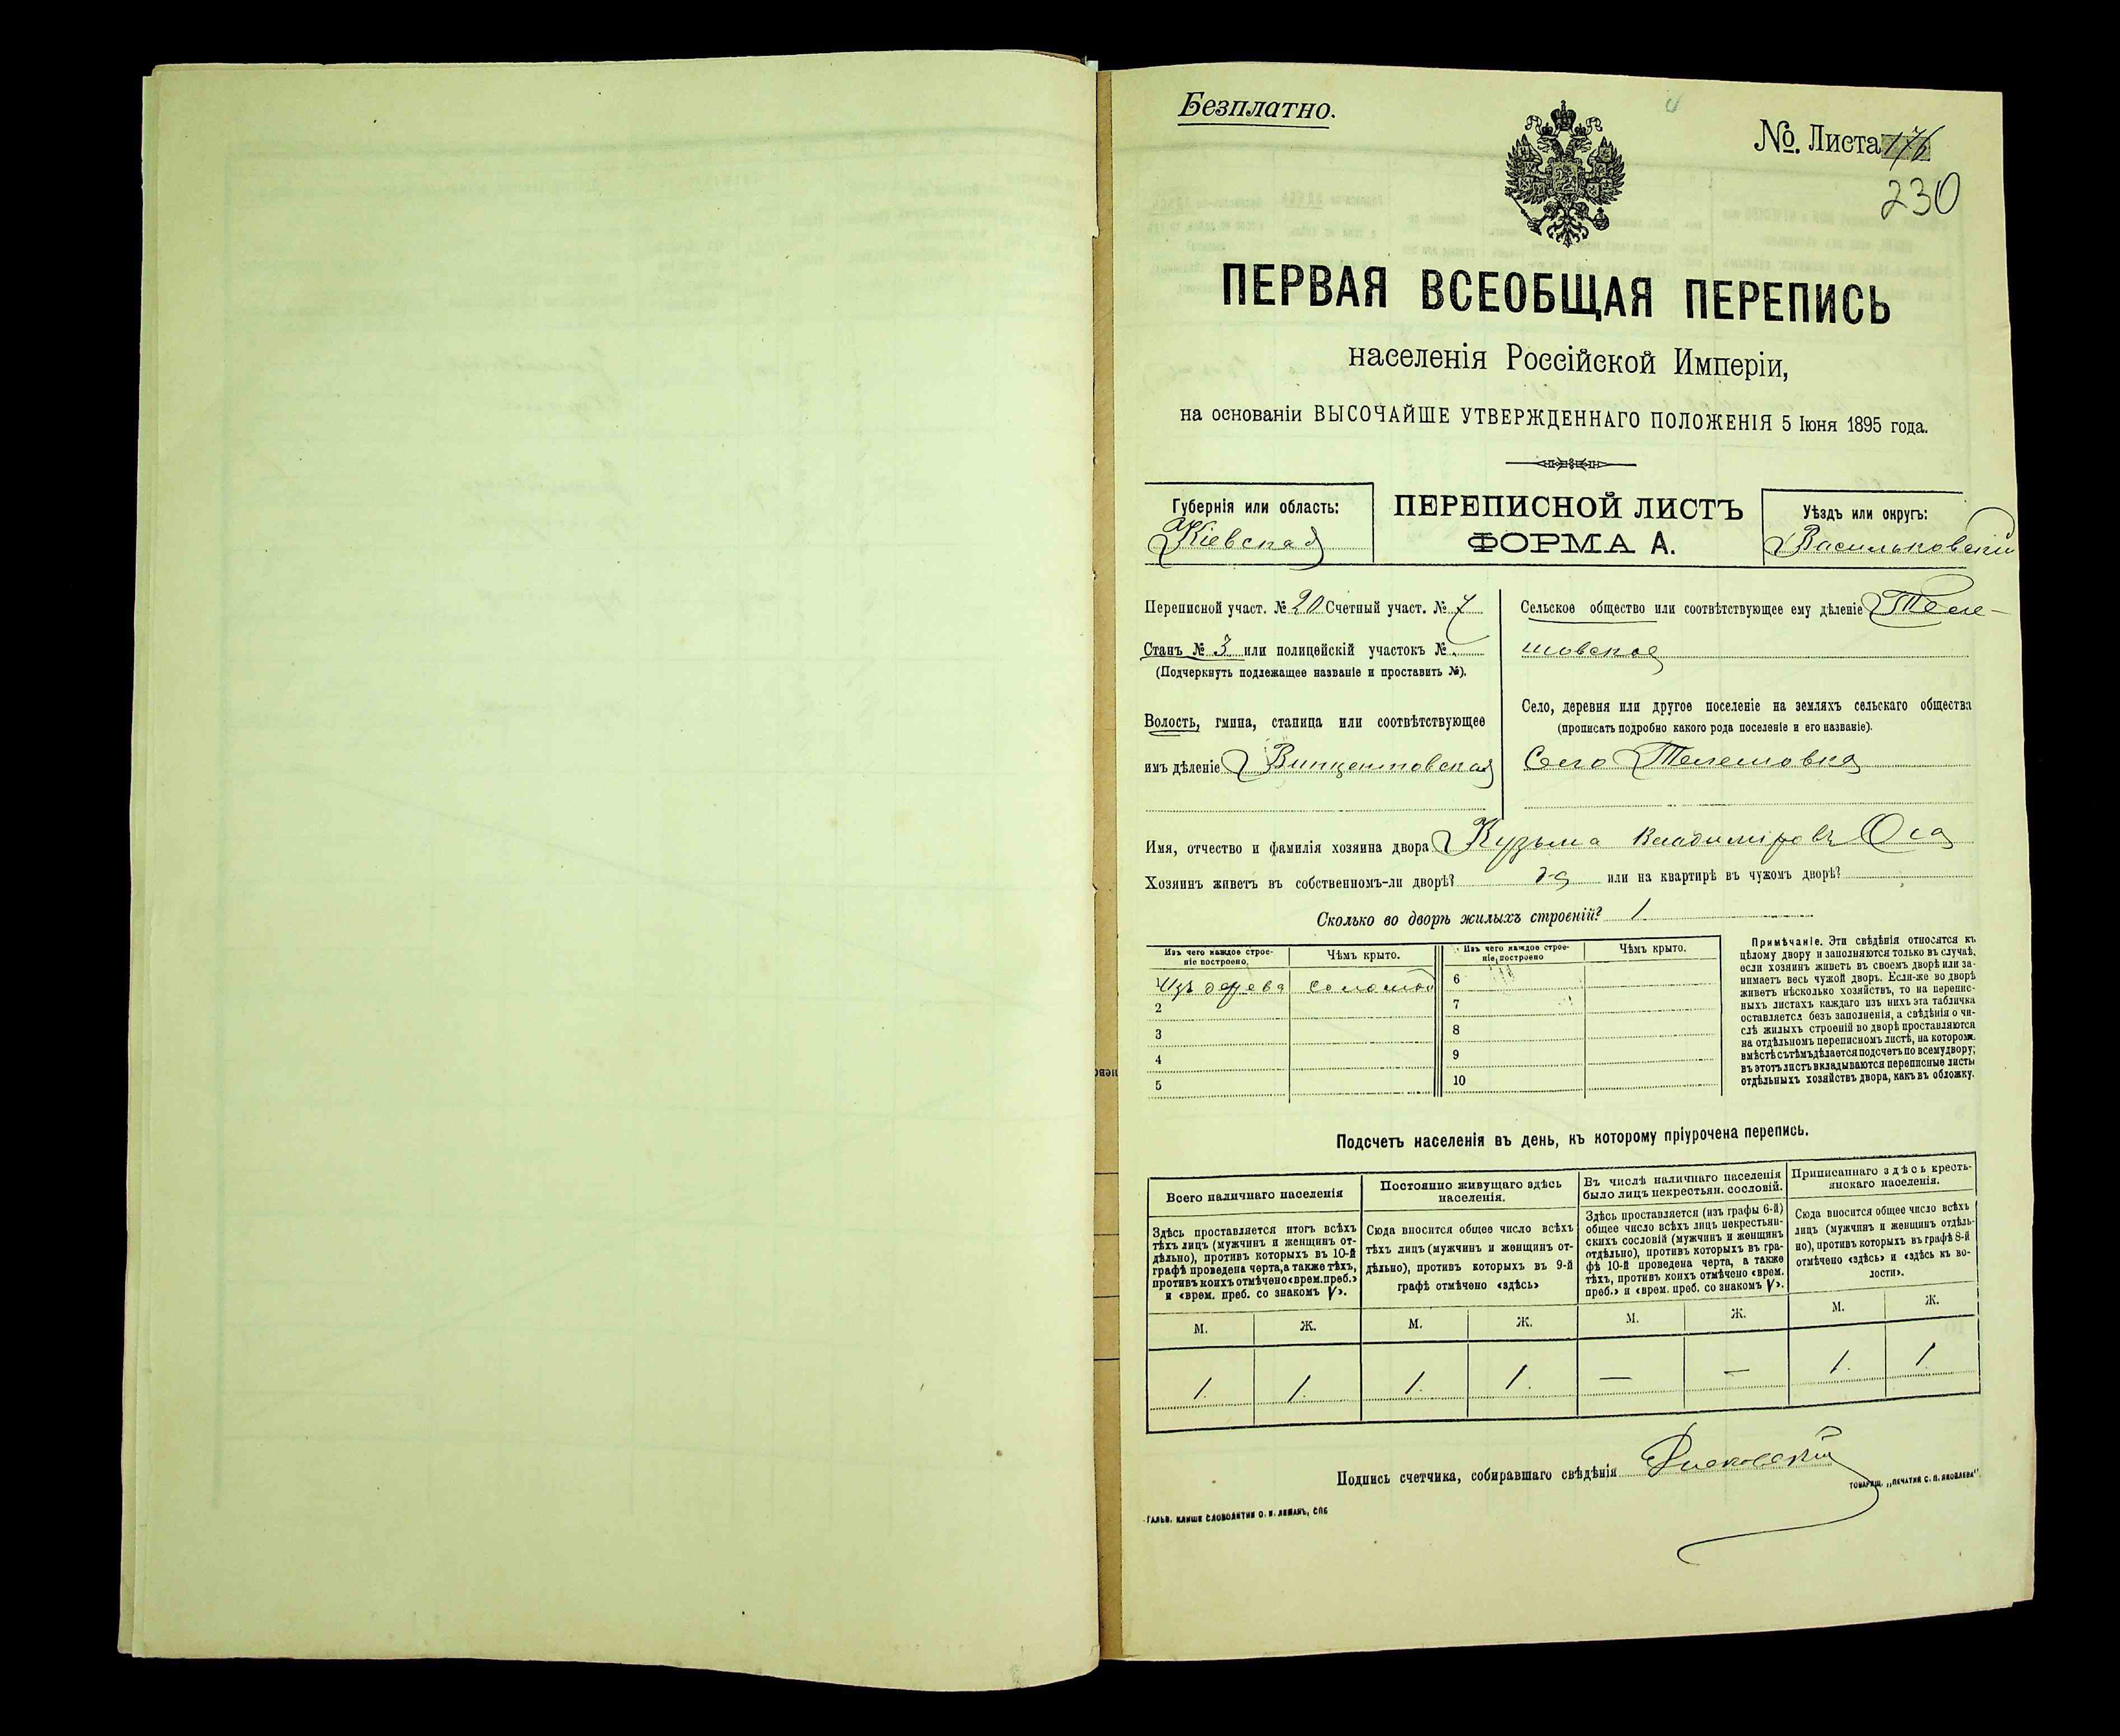 Безплатно.
№. Листа 176
230
ПЕРВАЯ ВСЕОБЩАЯ ПЕРЕПИСЬ
населенія Россійской Имперіи,
на основаніи ВЫСОЧАЙШЕ УТВЕРЖДЕННАГО ПОЛОЖЕНІЯ 5 Іюня 1895 года.
Губернія или область:
Кіевская
ПЕРЕПИСНОЙ ЛИСТЪ
ФОРМА А.
Уѣздъ или округъ:
Васильковскій
Переписной участ. № 20 Счетный участ. № 7
Станъ № 3 или полицейскій участокъ №
(Подчеркнуть подлежащее названіе и проставить №).
Волость, гмина, станица или соотвѣтствующее
имъ дѣленіе Винцентовская
Сельское общество или соотвѣтствующее ему дѣленіе Теле-
шовское
Село, деревня или другое поселеніе на земляхъ сельскаго общества
(прописать подробно какого рода поселеніе и его названіе).
Село Телешовка
Имя, отчество и фамилія хозяина двора Кузьма Владиміровъ Оса
Хозяинъ живетъ въ собственномъ-ли дворѣ? да или на квартирѣ въ чужомъ дворѣ?
Сколько во дворѣ жилыхъ строеній? 1
Изъ чего каждое строе-
ніе построено.
Чѣмъ крыто.
Изъ чего каждое строе-
ніе построено
Чѣмъ крыто.
Изъ дерева соломой 6
2 7
3 8
4 9
5 10
Примѣчаніе. Эти свѣдѣнія относятся къ
цѣлому двору и заполняются только въ случаѣ,
если хозяинъ живетъ въ своемъ дворѣ или за-
нимаетъ весь чужой дворъ. Если-же во дворѣ
живетъ нѣсколько хозяйствъ, то на перепис-
ныхъ листахъ каждаго изъ нихъ эта табличка
оставляется безъ заполненія, а свѣдѣнія о чи-
слѣ жилыхъ строеній во дворѣ проставляются
на отдѣльномъ переписномъ листѣ, на которомъ
вмѣстѣ съ тѣмъ дѣлается подсчетъ по всему двору;
въ этотъ листъ вкладываются переписные листы
отдѣльныхъ хозяйствъ двора, какъ въ обложку.
Подсчетъ населенія въ день, къ которому пріурочена перепись.
Всего наличнаго населенія
Здѣсь проставляется итогъ всѣхъ
тѣхъ лицъ (мужчинъ и женщинъ от-
дѣльно), противъ которыхъ въ 10-й
графѣ проведена черта, а также тѣхъ,
противъ коихъ отмѣчено «врем. преб.»
и «врем. преб. со знакомъ V».
Постоянно живущаго здѣсь
населенія.
Сюда вносится общее число всѣхъ
тѣхъ лицъ (мужчинъ и женщинъ от-
дѣльно), противъ которыхъ въ 9-й
графѣ отмѣчено «здѣсь»
Въ числѣ наличнаго населенія
было лицъ некрестьян. сословій.
Здѣсь проставляется (изъ графы 6-й)
общее число всѣхъ лицъ некрестьян-
скихъ сословій (мужчинъ и женщинъ
отдѣльно), противъ которыхъ въ гра-
фѣ 10-й проведена черта, а также
тѣхъ, противъ коихъ отмѣчено «врем.
преб.» и «врем. преб. со знакомъ V».
Приписаннаго здѣсь кресть-
янскаго населенія.
Сюда вносится общее число всѣхъ
лицъ (мужчинъ и женщинъ отдѣль-
но), противъ которыхъ въ графѣ 8-й
отмѣчено «здѣсь» и «здѣсь къ во-
лости».
М. Ж. М. Ж. М. Ж. М. Ж.
1. 1. 1. 1. — — 1. 1.
Подпись счетчика, собиравшаго свѣдѣнія
ГАЛЬВ. КЛИШЕ СЛОВОЛИТНИ О. И. ЛЕМАНЪ, СПБ
ТОВАРИЩ. „ПЕЧАТНЯ С. П. ЯКОВЛЕВА".